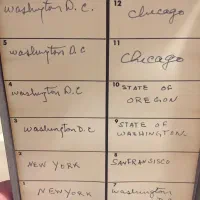 Washington D.C.
12
Chicago
5
Washington D.C
11
Chicago
4
Washington D.C
10 STATE OF
OREGON
3
Washington D.C
9 STATE OF
WASHINGTON
2
NEW YORK
8
SANFRANSISCO
1
NEW YORK
7
Washington